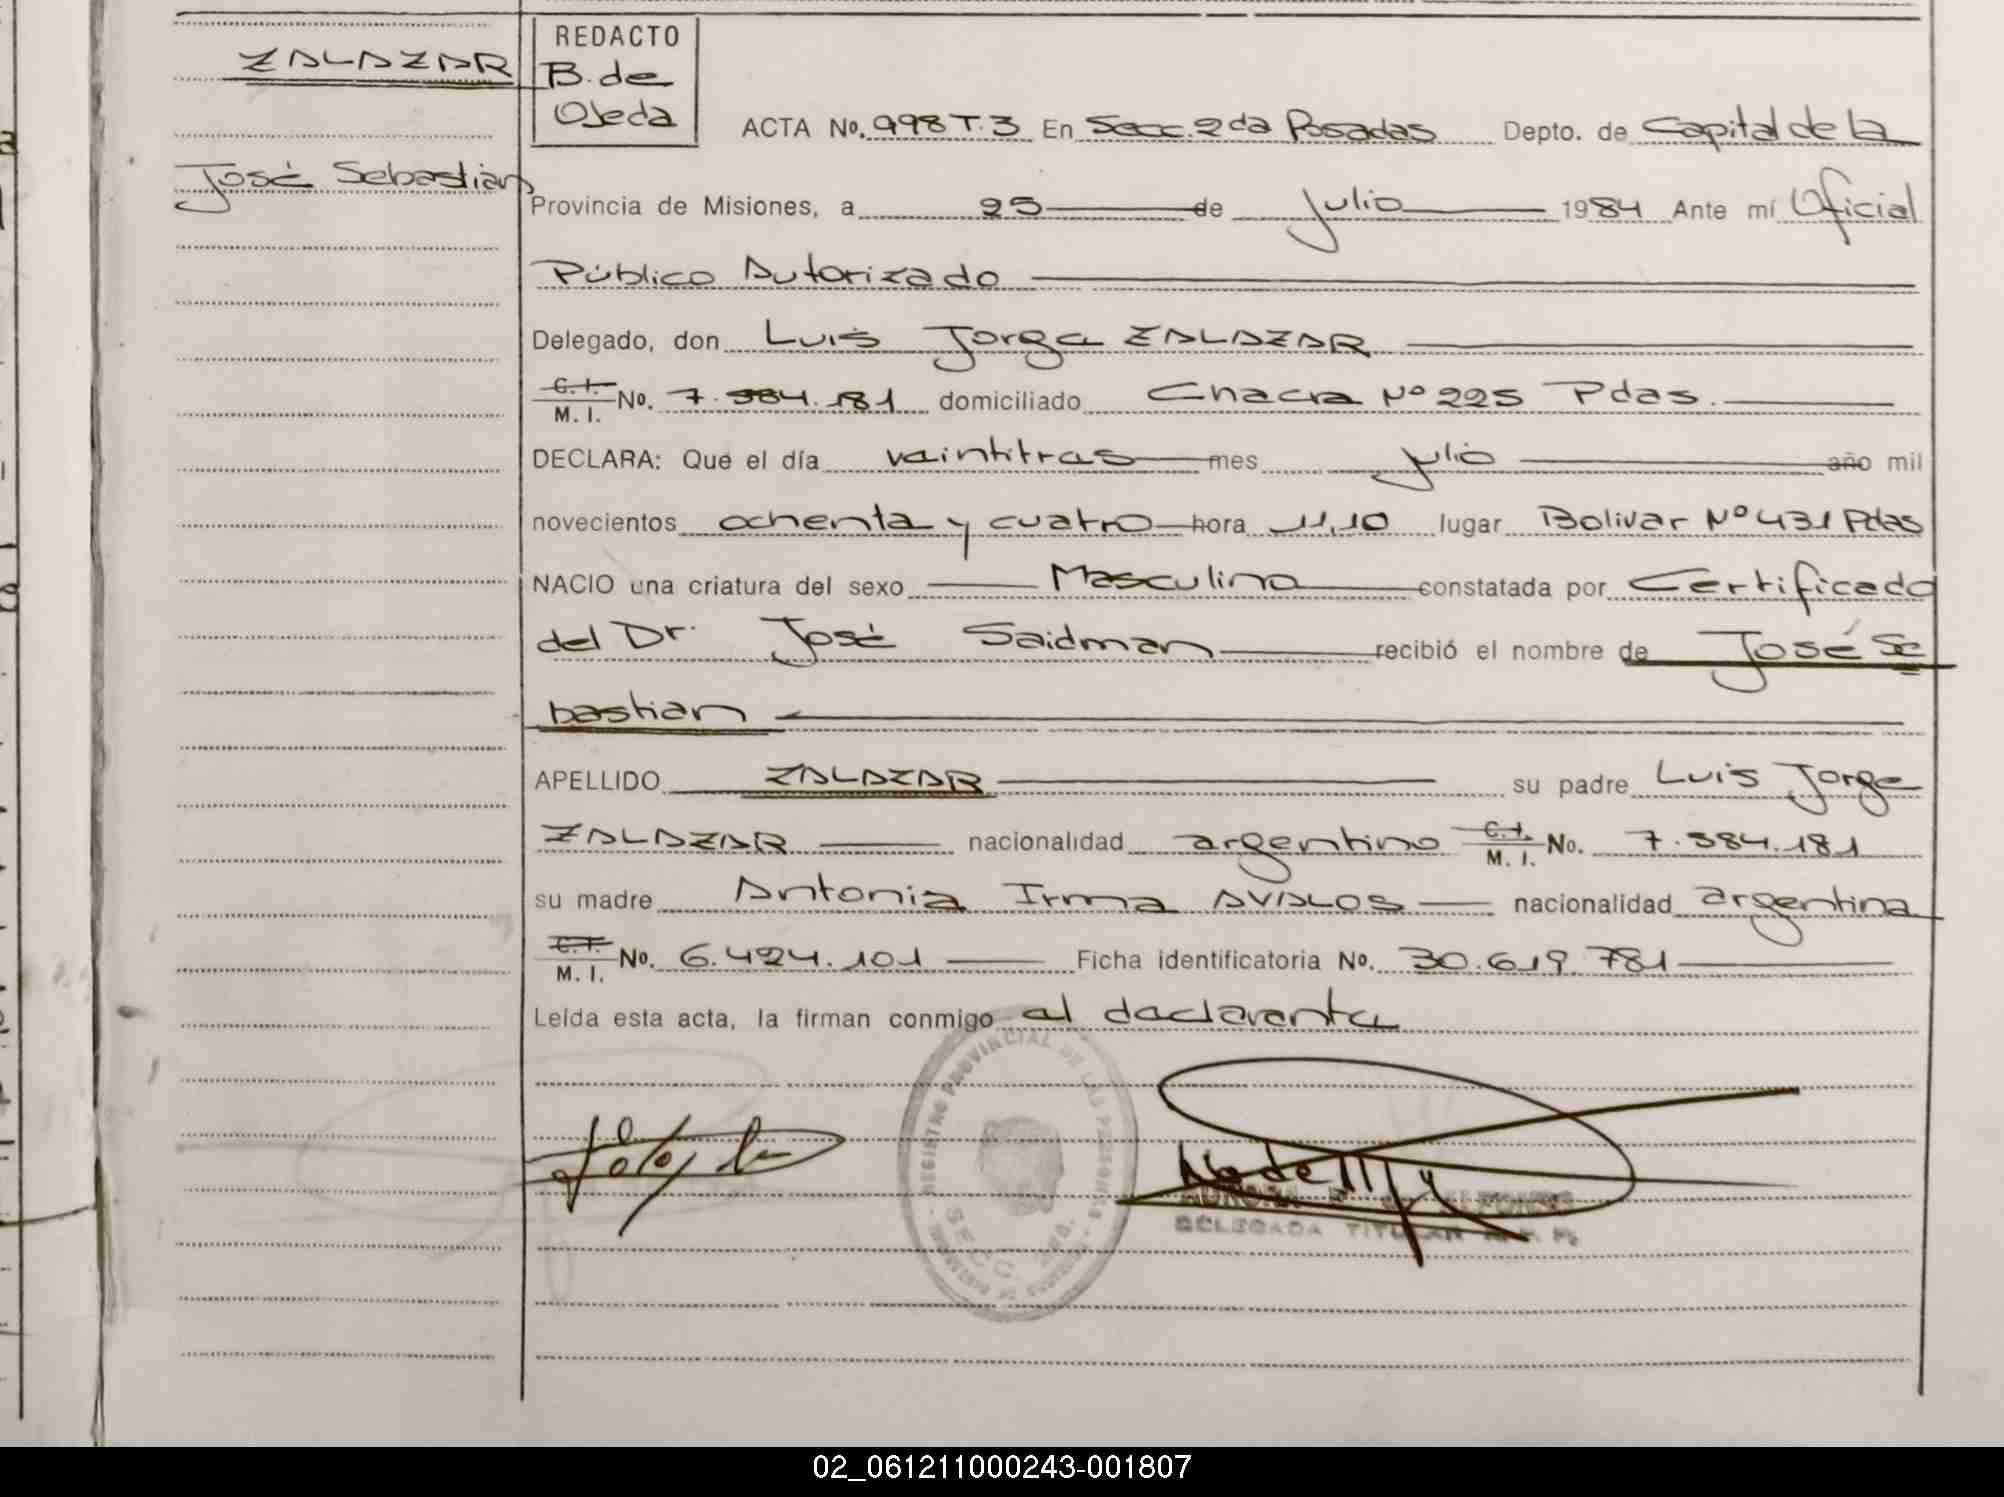 ZALAZAR
José Sebastián
REDACTO
B. de
Ojeda
ACTA No. 998 T. 3 En Secc. 2da Posadas Depto. de Capital de la
Provincia de Misiones, a 25 de julio 1984 Ante mí Oficial
Público Autorizado
Delegado, don Luis Jorge ZALAZAR
C. I.
M. I. No. 7.584.181 domiciliado Chacra Nº 225 Pdas.
DECLARA: Que el día veintitres mes julio año mil
novecientos ochenta y cuatro hora 11,10 lugar Bolivar Nº 431 Pdas
NACIO una criatura del sexo Masculino constatada por Certificado
del Dr. José Saidman recibió el nombre de José Se
bastian
APELLIDO ZALAZAR su padre Luis Jorge
ZALAZAR nacionalidad argentino C. I. M. I. No. 7.584.181
su madre Antonia Irma AVALOS nacionalidad argentina
C. I.
M. I. No. 6.424.101 Ficha identificatoria No. 30.619.781
Leída esta acta, la firman conmigo el declarante
REGISTRO PROVINCIAL DE LAS PERSONAS
SECC. 2da.
DELEGADA TITULAR
02_061211000243-001807